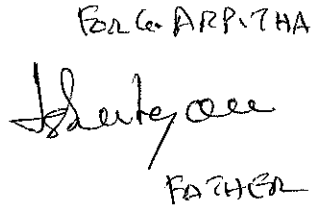 FOR G. ARPITHA
FATHER